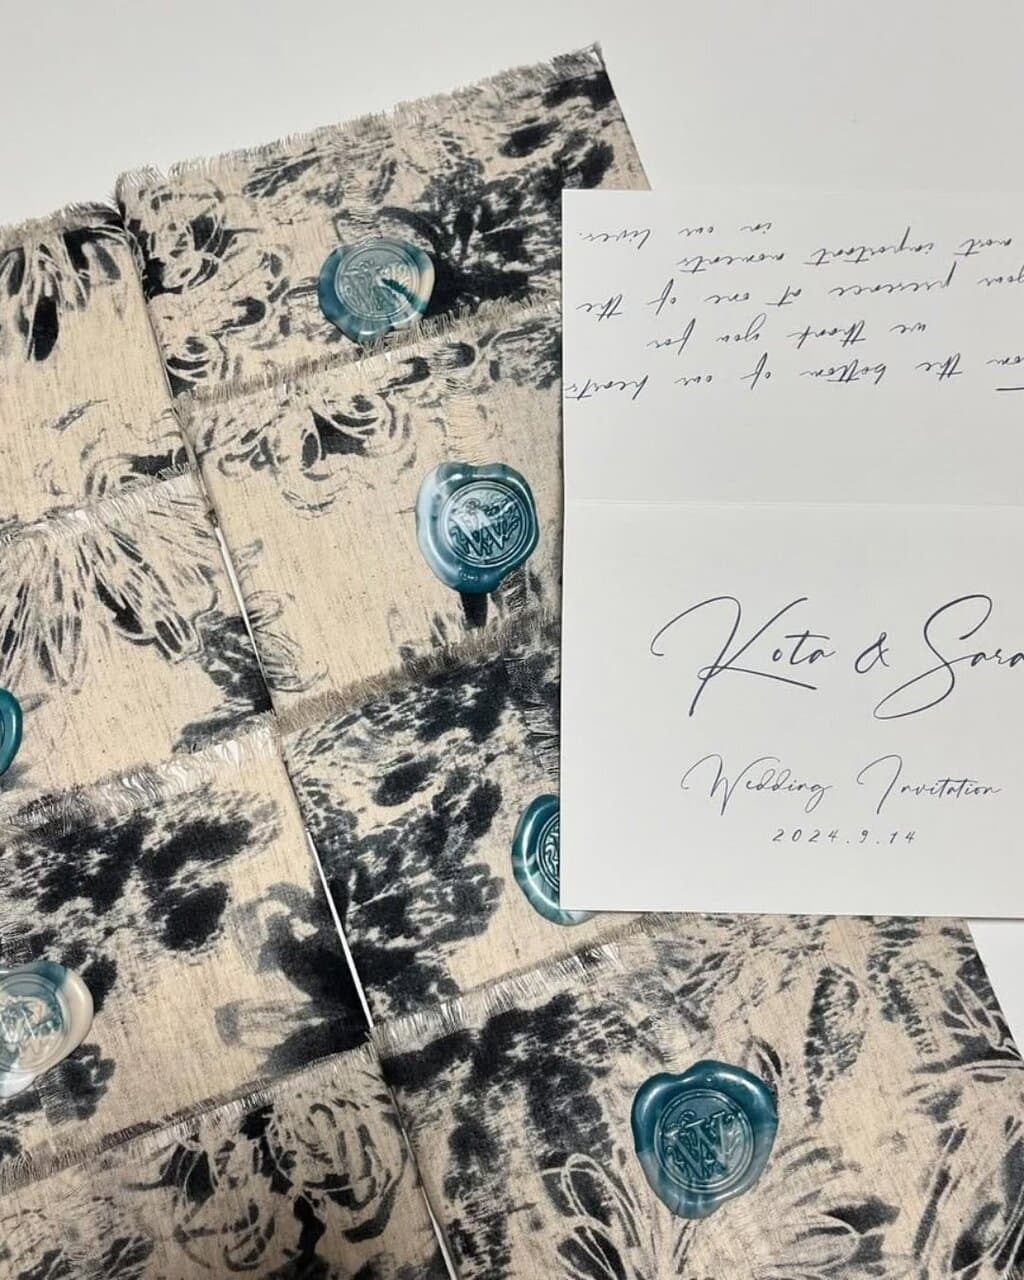 From the bottom of our hearts
we thank you for
your presence at one of the
most important moments
in our lives.
Kota & Sara
Wedding Invitation
2024.9.14
W
W
W